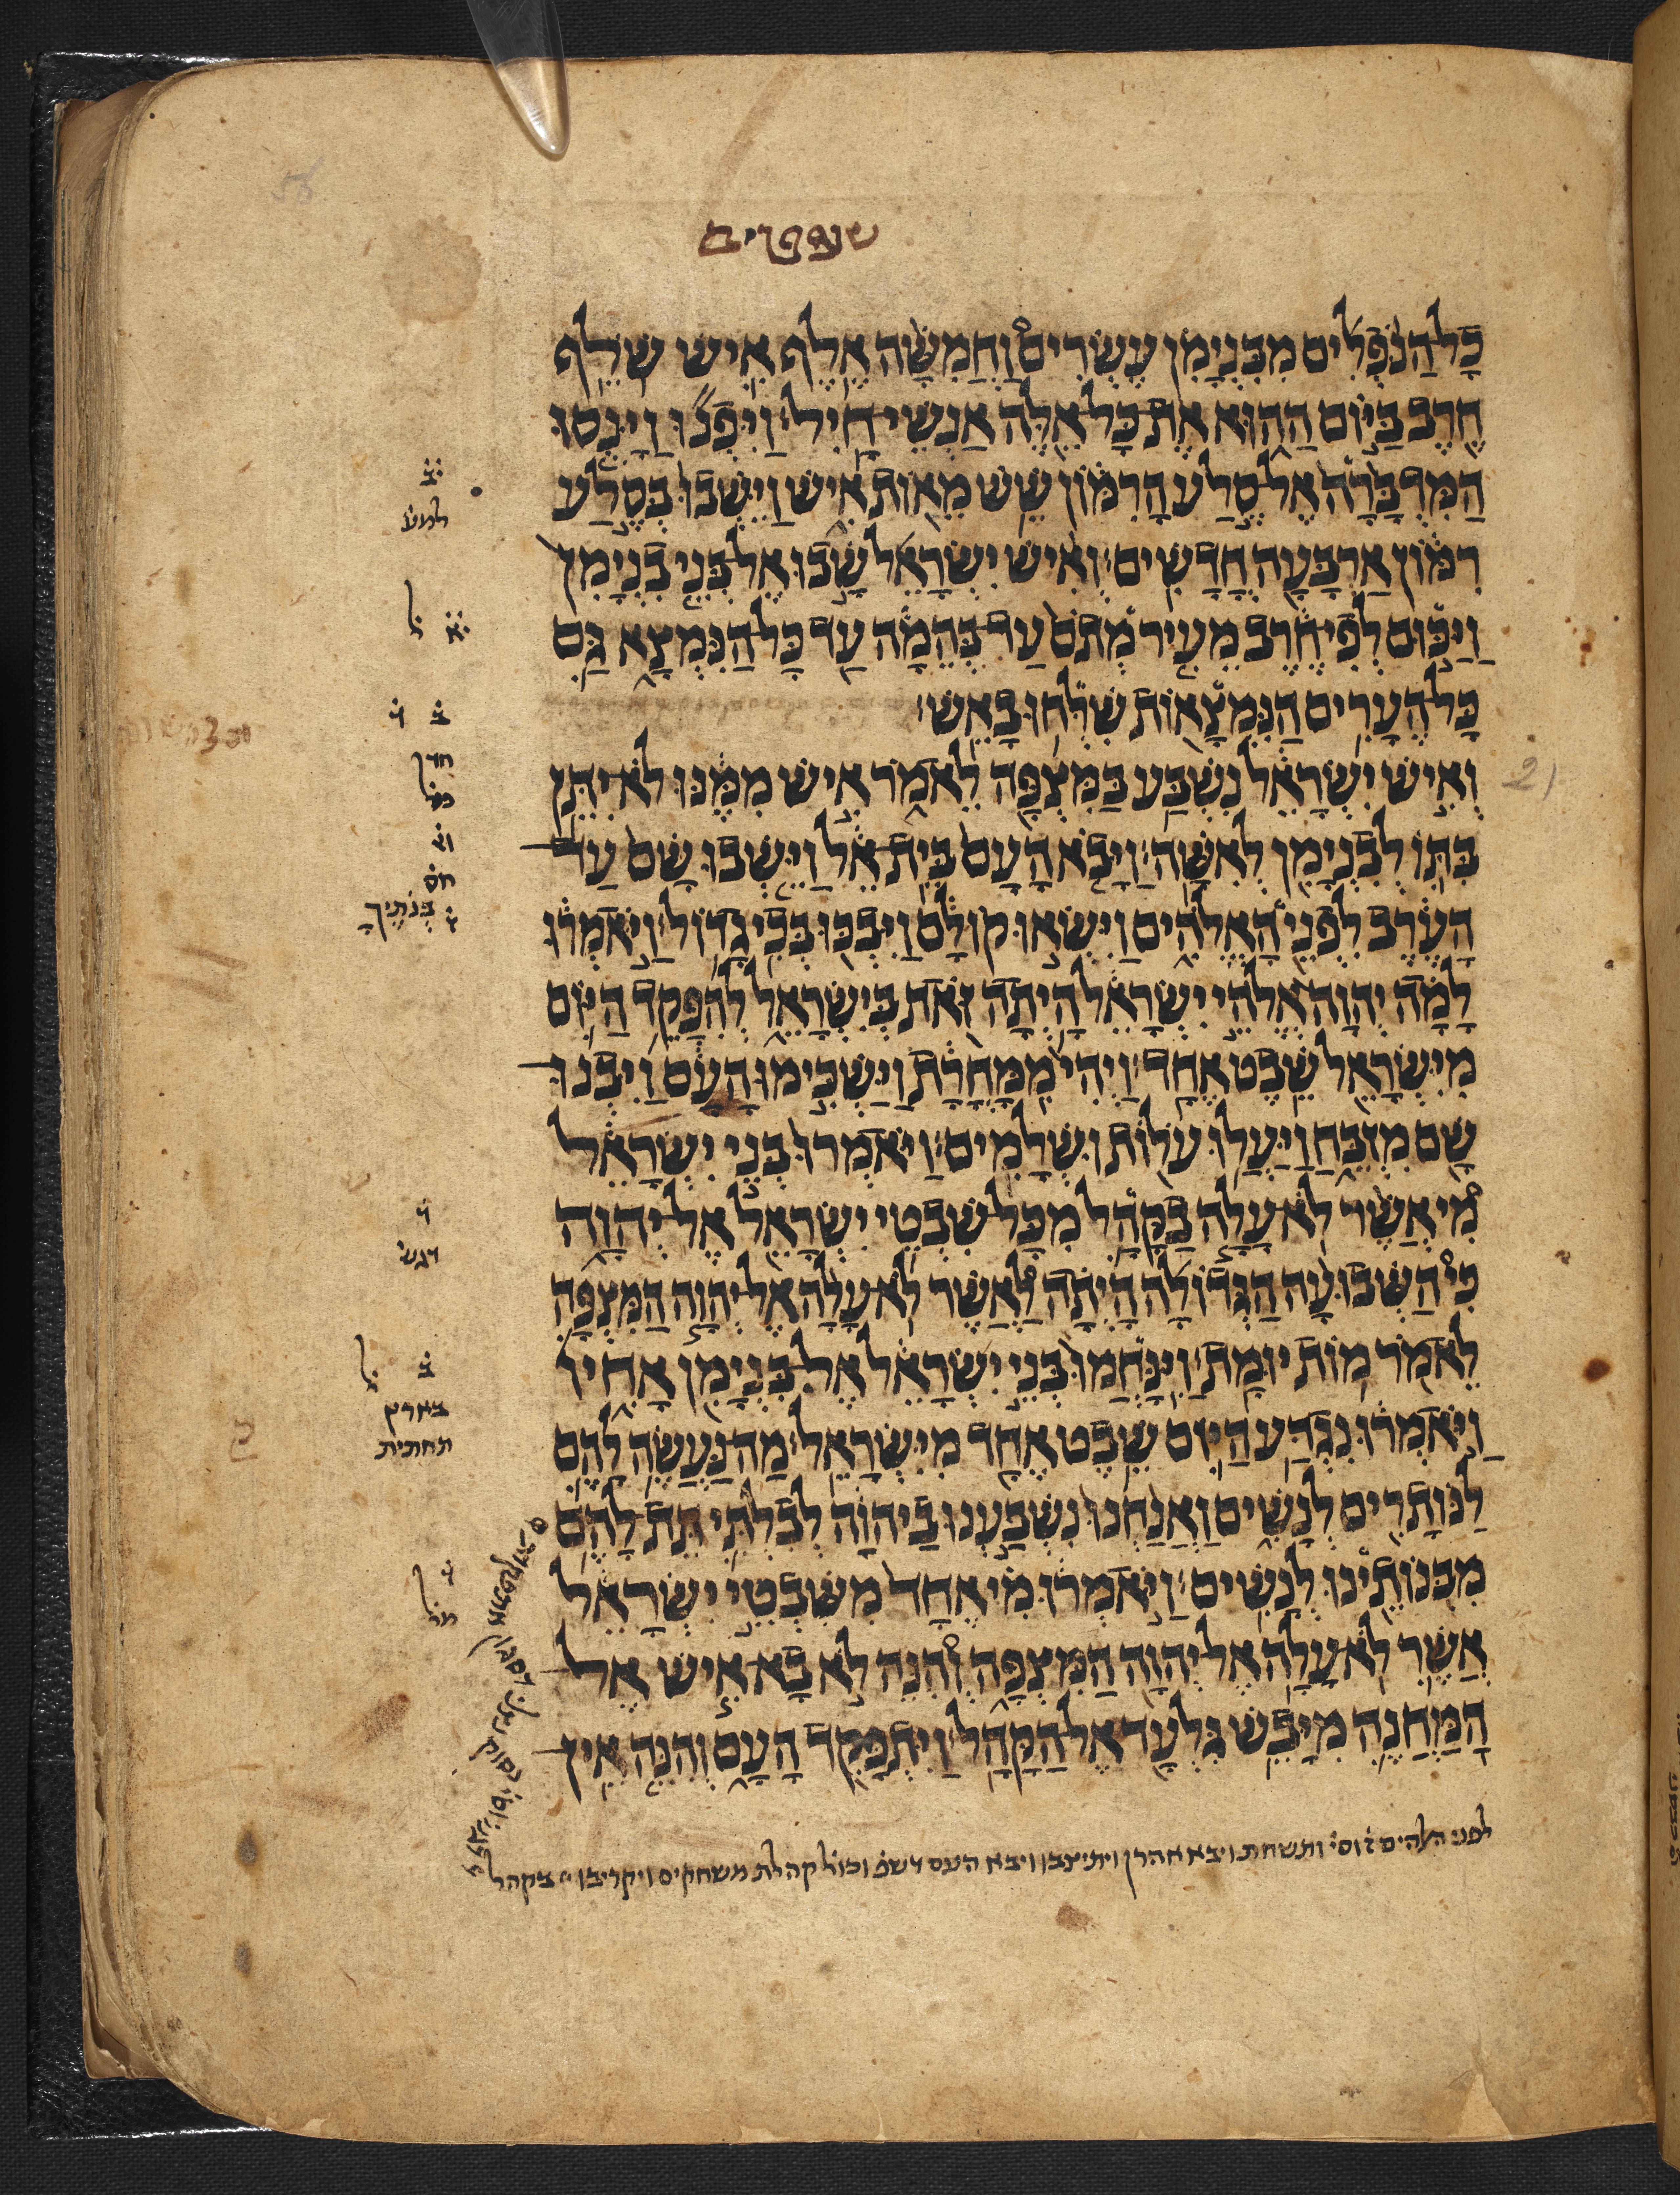 שופטים
כָּל הַנֹּפְלִים מִבִּנְיָמִן עֶשְׂרִים וַחֲמִשָּׁה אֶלֶף אִישׁ שֹׁלֵף
חֶרֶב בַּיּוֹם הַהוּא אֶת כָּל אֵלֶּה אַנְשֵׁי חָיִל׃ וַיִּפְנוּ וַיָּנֻסוּ
הַמִּדְבָּרָה אֶל סֶלַע הָרִמּוֹן שֵׁשׁ מֵאוֹת אִישׁ וַיֵּשְׁבוּ בְּסֶלַע
רִמּוֹן אַרְבָּעָה חֳדָשִׁים׃ וְאִישׁ יִשְׂרָאֵל שָׁבוּ אֶל בְּנֵי בִנְיָמִן
וַיַּכּוּם לְפִי חֶרֶב מֵעִיר מְתֹם עַד בְּהֵמָה עַד כָּל הַנִּמְצָא גַּם
כָּל הֶעָרִים הַנִּמְצָאוֹת שִׁלְּחוּ בָאֵשׁ׃
וְאִישׁ יִשְׂרָאֵל נִשְׁבַּע בַּמִּצְפָּה לֵאמֹר אִישׁ מִמֶּנּוּ לֹא יִתֵּן
בִּתּוֹ לְבִנְיָמִן לְאִשָּׁה׃ וַיָּבֹא הָעָם בֵּית אֵל וַיֵּשְׁבוּ שָׁם עַד
הָעֶרֶב לִפְנֵי הָאֱלֹהִים וַיִּשְׂאוּ קוֹלָם וַיִּבְכּוּ בְּכִי גָדוֹל׃ וַיֹּאמְרוּ
לָמָה יְהוָה אֱלֹהֵי יִשְׂרָאֵל הָיְתָה זֹּאת בְּיִשְׂרָאֵל לְהִפָּקֵד הַיּוֹם
מִיִּשְׂרָאֵל שֵׁבֶט אֶחָד׃ וַיְהִי מִמָּחֳרָת וַיַּשְׁכִּימוּ הָעָם וַיִּבְנוּ
שָׁם מִזְבֵּחַ וַיַּעֲלוּ עֹלוֹת וּשְׁלָמִים׃ וַיֹּאמְרוּ בְּנֵי יִשְׂרָאֵל
מִי אֲשֶׁר לֹא עָלָה בַקָּהָל מִכָּל שִׁבְטֵי יִשְׂרָאֵל אֶל יְהוָה
כִּי הַשְּׁבוּעָה הַגְּדוֹלָה הָיְתָה לַאֲשֶׁר לֹא עָלָה אֶל יְהוָה הַמִּצְפָּה
לֵאמֹר מוֹת יוּמָת׃ וַיִּנָּחֲמוּ בְּנֵי יִשְׂרָאֵל אֶל בִּנְיָמִן אָחִיו
וַיֹּאמְרוּ נִגְדַּע הַיּוֹם שֵׁבֶט אֶחָד מִיִּשְׂרָאֵל׃ מַה נַּעֲשֶׂה לָהֶם
לַנּוֹתָרִים לְנָשִׁים וַאֲנַחְנוּ נִשְׁבַּעְנוּ בַיהוָה לְבִלְתִּי תֵּת לָהֶם
מִבְּנוֹתֵינוּ לְנָשִׁים׃ וַיֹּאמְרוּ מִי אֶחָד מִשִּׁבְטֵי יִשְׂרָאֵל
אֲשֶׁר לֹא עָלָה אֶל יְהוָה הַמִּצְפָּה וְהִנֵּה לֹא בָא אִישׁ אֶל
הַמַּחֲנֶה מִיָּבֵשׁ גִּלְעָד אֶל הַקָּהָל׃ וַיִּתְפָּקֵד הָעָם וְהִנֵּה אֵין
ב
ל
ב
חד
בְּנֹתֶיךָ
דגש
ב ל
בארץ
תחתית
ל
21
לפני האלהים ותשחת ויבא אהרן ויתיצבו ויבא העם וכול קהלת ויקריבו בקהל